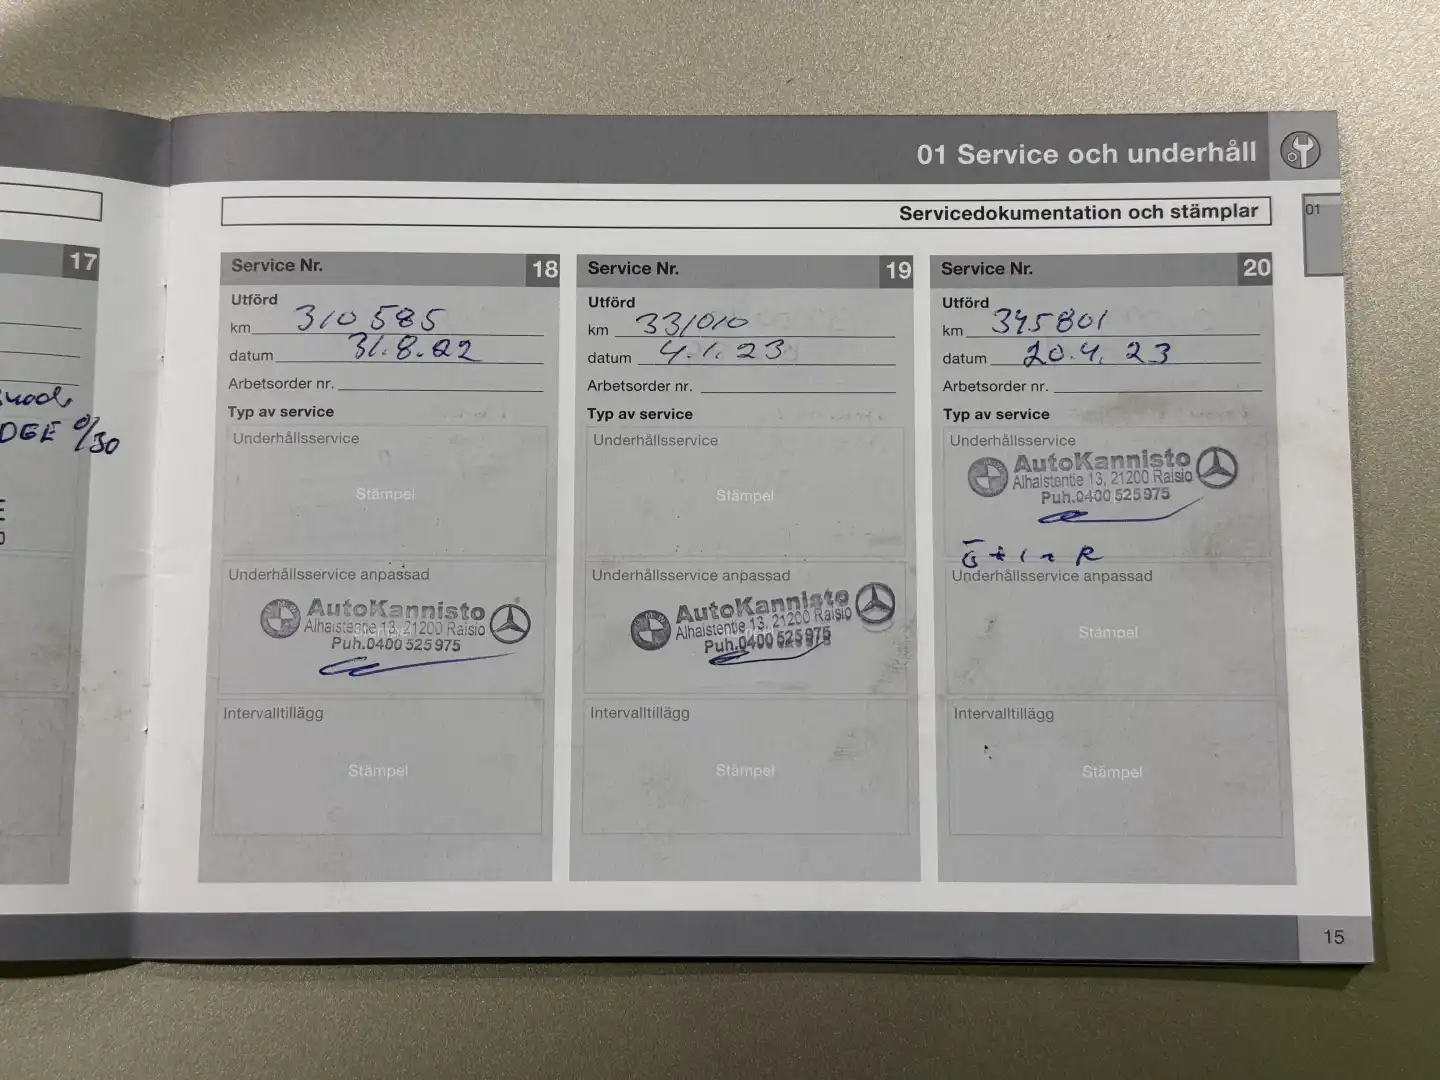 01 Service och underhåll
Servicedokumentation och stämplar
01
17
DGE 0/30
Service Nr. 18
Utförd
km 310 585
datum 31.8.22
Arbetsorder nr.
Typ av service
Underhållsservice
Stämpel
Underhållsservice anpassad
AutoKannisto
Alhaistentie 13, 21200 Raisio
Puh.0400 525 975
Intervalltillägg
Stämpel
Service Nr. 19
Utförd
km 331010
datum 4.1.23
Arbetsorder nr.
Typ av service
Underhållsservice
Stämpel
Underhållsservice anpassad
AutoKannisto
Alhaistentie 13, 21200 Raisio
Puh.0400 525 975
Intervalltillägg
Stämpel
Service Nr. 20
Utförd
km 345801
datum 20.4.23
Arbetsorder nr.
Typ av service
Underhållsservice
AutoKannisto
Alhaistentie 13, 21200 Raisio
Puh.0400 525 975
Underhållsservice anpassad
Stämpel
Intervalltillägg
Stämpel
15